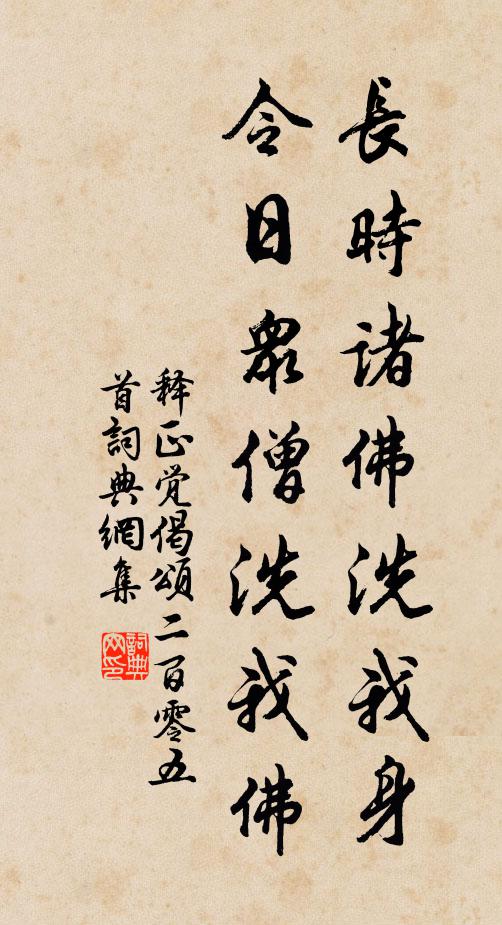 長時諸佛洗我身
今日衆僧洗我佛
释正觉偈頌二百零五
首詞典網集
詞典
网印